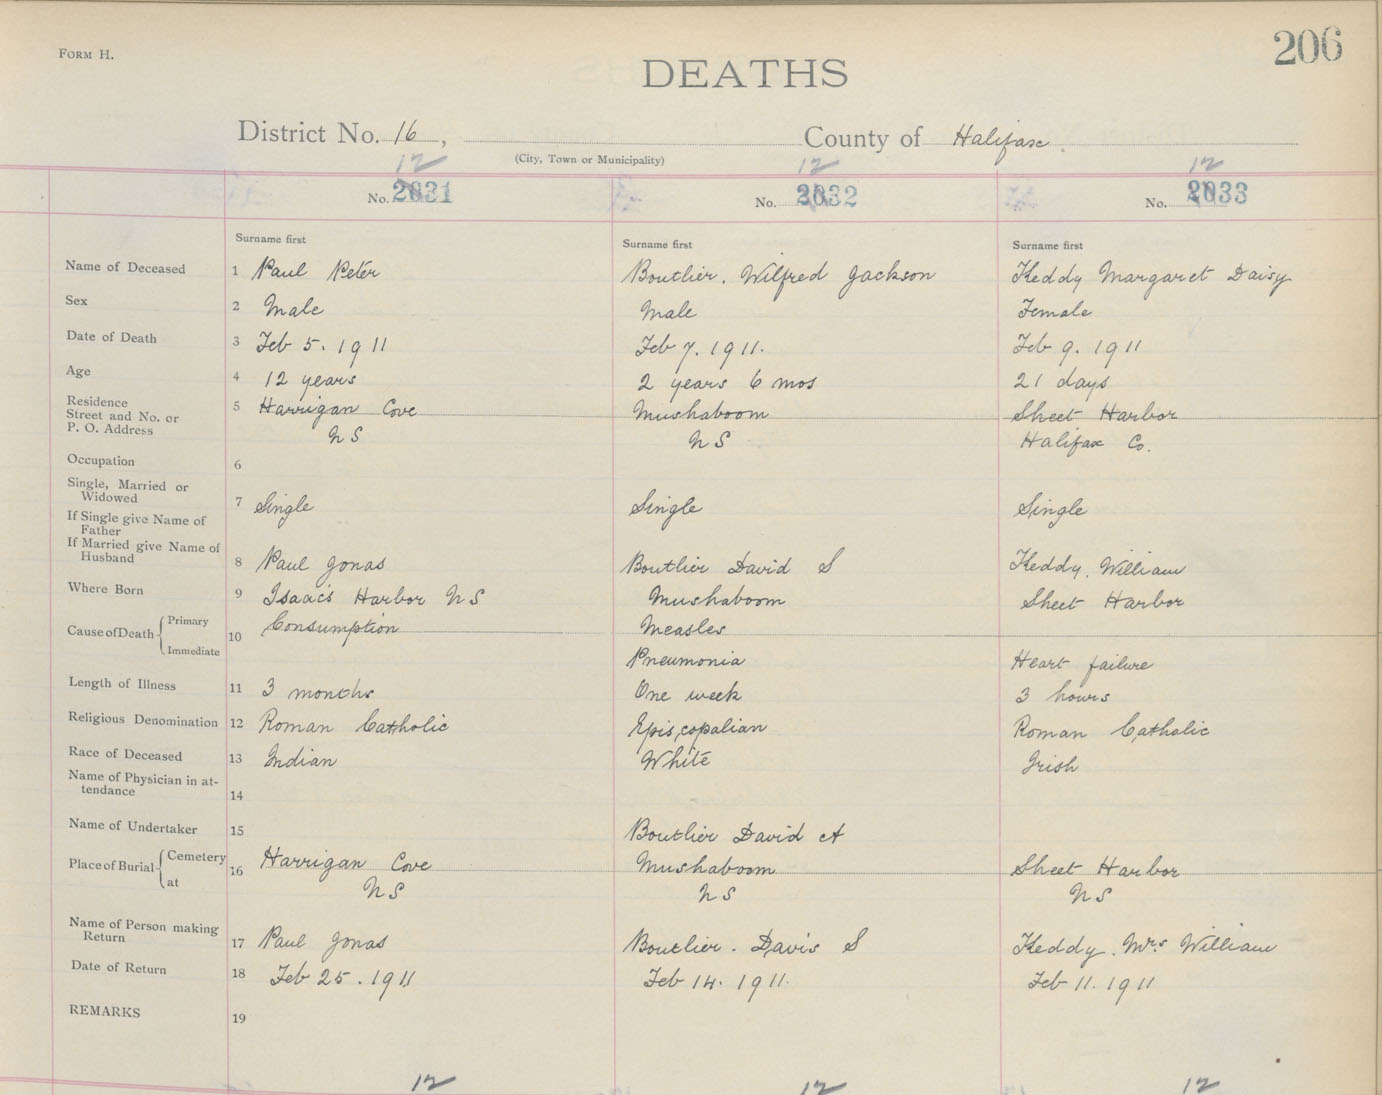 206
FORM H.
DEATHS
District No. 16, County of Halifax.
(City, Town or Municipality)
12 12 12
No. 2031 No. 2032 No. 2033
Surname first Surname first Surname first
Name of Deceased 1 Paul Peter Boutlier. Wilfred Jackson Keddy Margaret Daisy
Sex 2 Male Male Female
Date of Death 3 Feb 5. 1911 Feb 7. 1911. Feb 9. 1911
Age 4 12 years 2 years 6 mos 21 days
Residence
Street and No. or
P. O. Address
5 Harrigan Cove Mushaboom Sheet Harbor
N S N S Halifax Co.
Occupation 6
Single, Married or
Widowed
7 Single Single Single
If Single give Name of
Father
If Married give Name of
Husband
8 Paul Jonas Boutlier David S Keddy. William
Where Born 9 Isaacs Harbor N S Mushaboom Sheet Harbor
Cause of Death Primary 10 Consumption Measles
Immediate Pneumonia Heart failure
Length of Illness 11 3 months One week 3 hours
Religious Denomination 12 Roman Catholic Episcopalian Roman Catholic
Race of Deceased 13 Indian White Irish
Name of Physician in at-
tendance
14
Name of Undertaker 15 Boutlier David A
Place of Burial Cemetery 16 Harrigan Cove Mushaboom Sheet Harbor
at N S N S N S
Name of Person making
Return
17 Paul Jonas Boutlier. Davis S Keddy. Mrs William
Date of Return 18 Feb 25. 1911 Feb 14. 1911. Feb 11. 1911
REMARKS 19
12 12 12